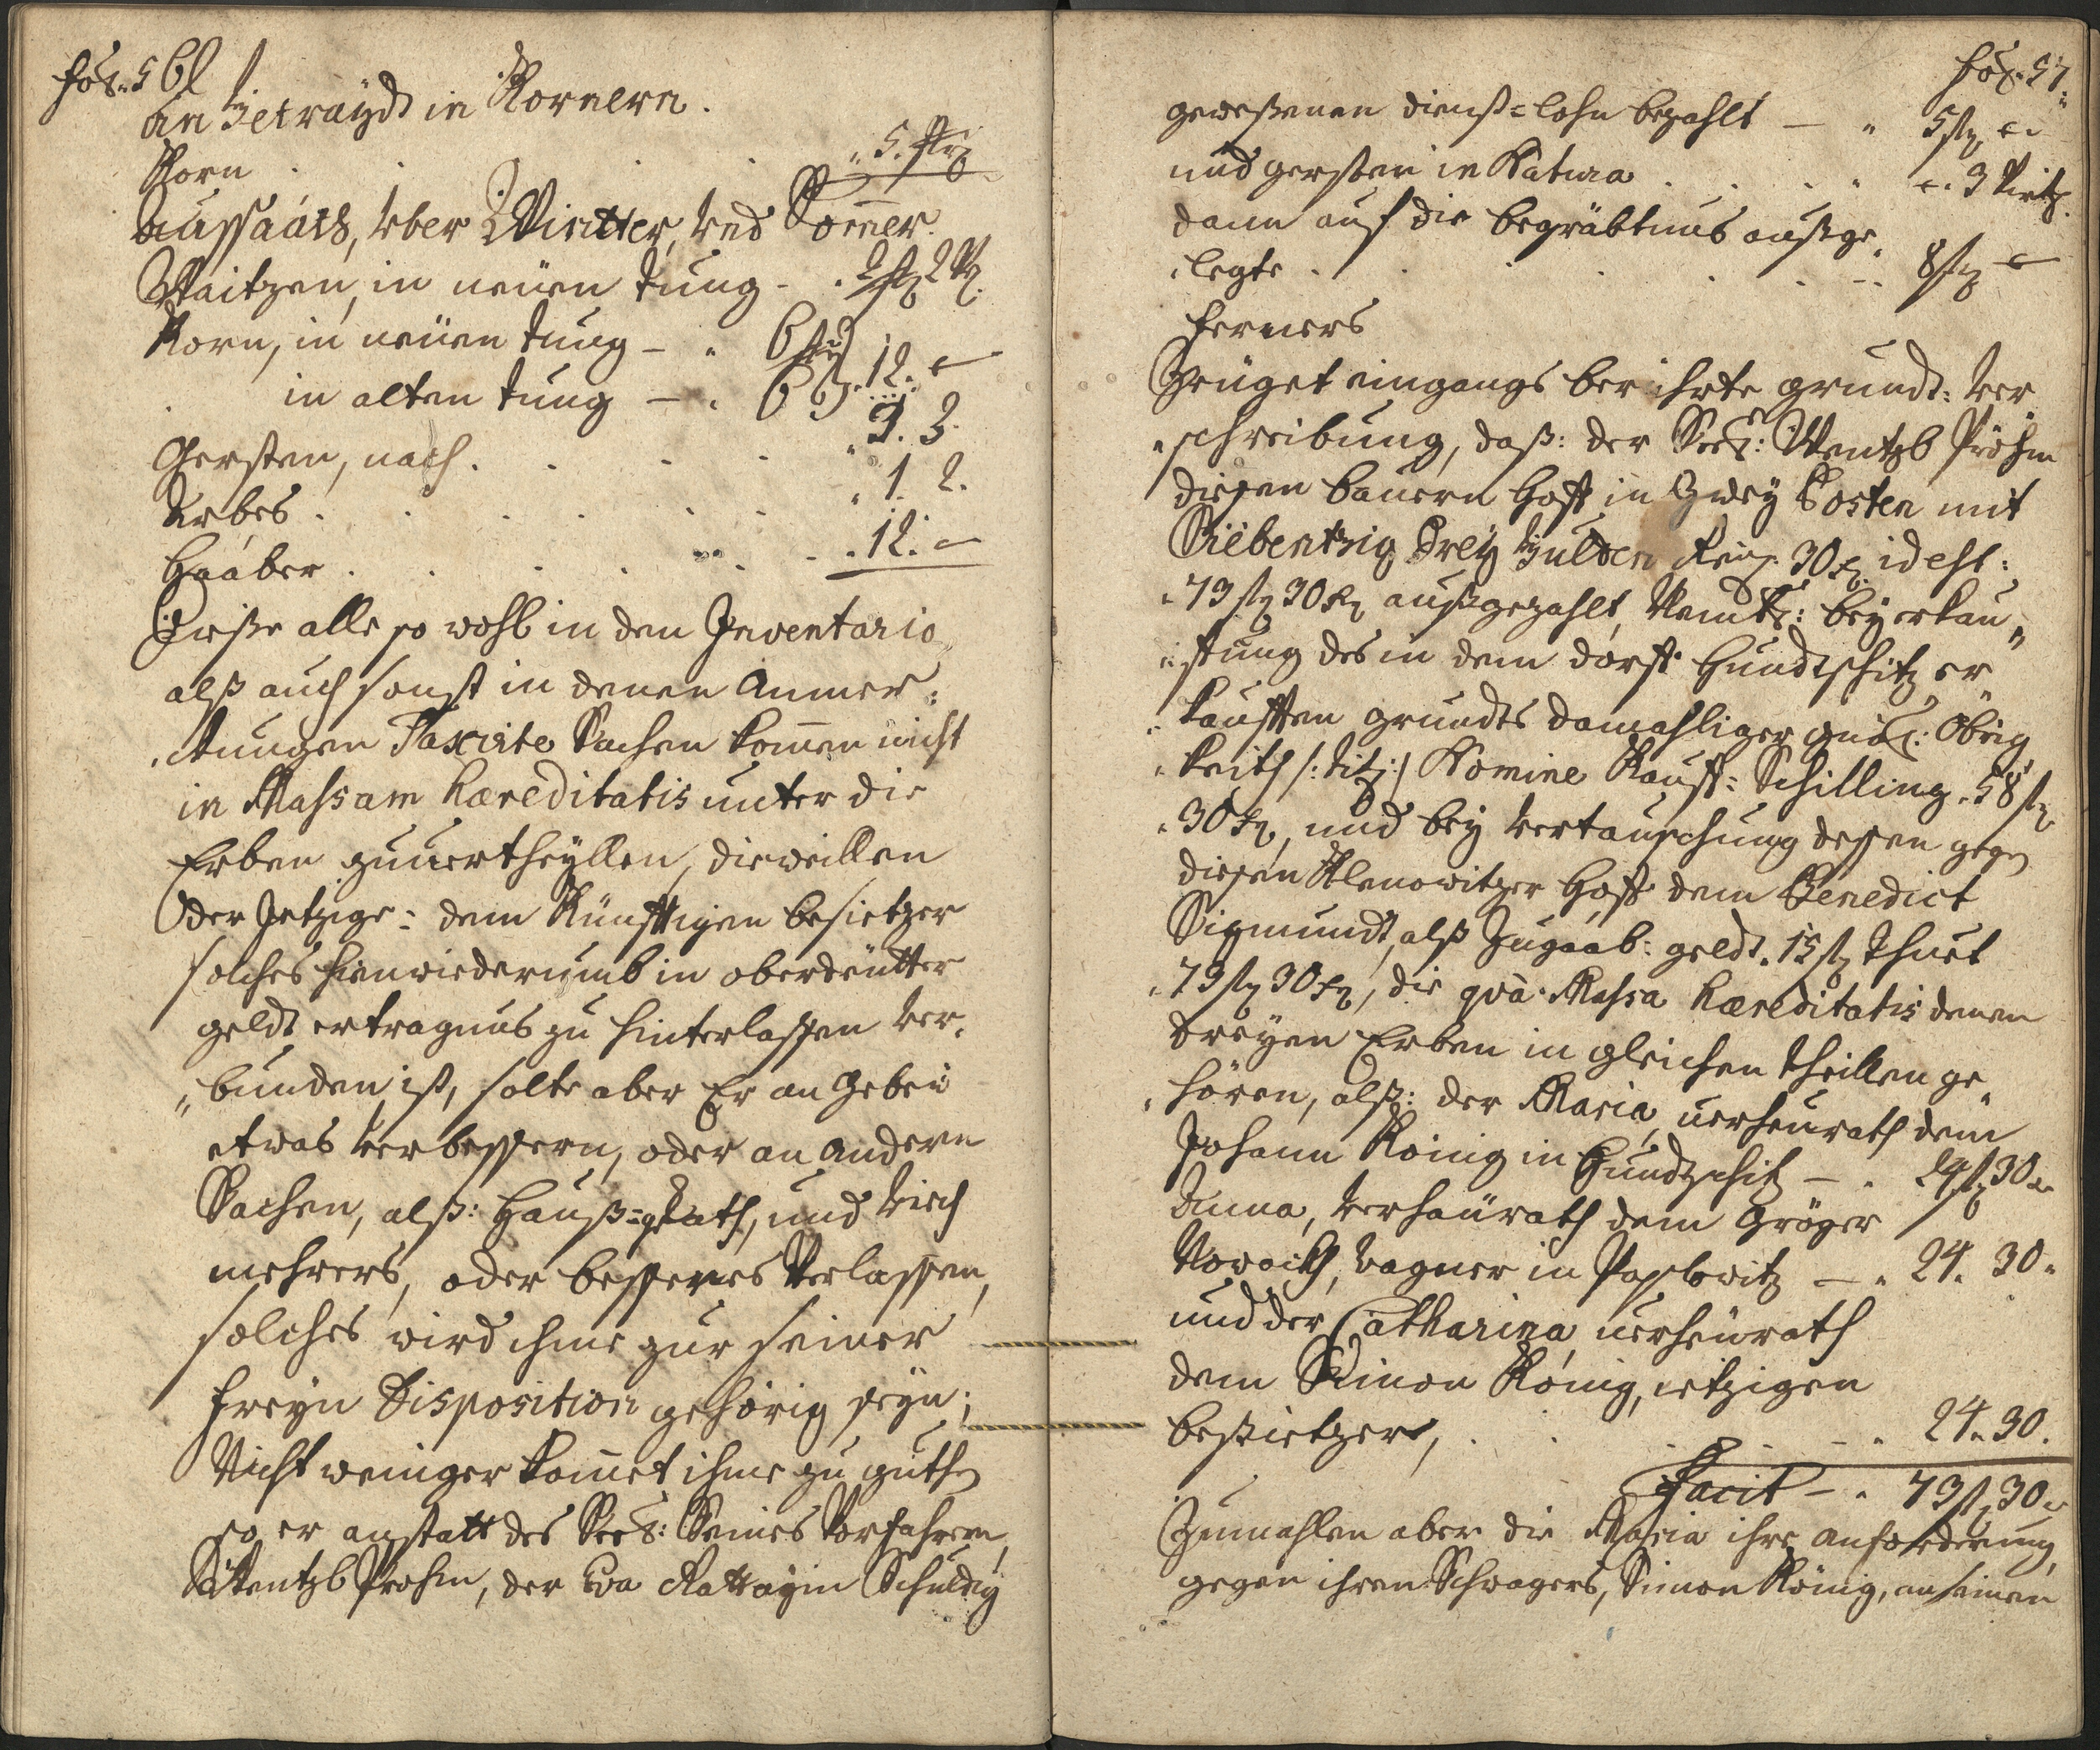 fol. 56
An Getraÿdt in Kornern.
Korn . . . 5. str
Aussaath, über Winter, und Som̄er.
Waitzen, in neüen tung - . 2 str 2 V.
Korn, in neüen tung - . 6
in alten tung - . 6 12. -
Gersten, nach . . . 3. 3.
Arbes . . . . 1. 2.
Haaber . . . . 12. -
Dieße alle so wohl in den Inventario
alß auch sonst in denen Anmer:
ckungen Taxirte Sachen kom̄en nicht
in Massam hæreditatis unter die
Erben zuuertheyllen, dieweillen
Der Jetzige: dem Künfftigen besietzer
solches hienwiederumb in oberdeutter
geldt ertragnus zu hinterlassen ver,
„bunden ist, solte aber Er an Gebeü
etwas verbessern, oder an Andern
Sachen, alß: Hauß=Rath, und Viech
mehrers, oder besseres Verlassen,
solches wird ihme zur seiner
freyn Disposition gehörig seyn;
Nicht weniger kom̄et ihme zu guthen
so er anstatt des Seel: Seines Vorfahren,
Wentzl Prohm, der Eva Rattayin Schuldig
fol. 57
geweßenen dienst=lohn bezahlt - „ 5 fl -
und gersten in Natura . . . . -. 3 Viertl.
dann auf die begräbtnus außge,
„legte . . . . 8 fl -
ferners
Zeüget eingangs berihrte grundt: Ver
„schreibung, daß: der Seel: Wentzl Pröhm
diesen bauern Hoff in Zwey Posten mit
Siebentzig Drey Gulden Rein. 30 x. idest:
„73 fl 30 x außgezahlt, Nembl: bey erkau„
„ffung des in dem dorff Hundtschitz er„
„kaufften grundts damahliger gnäd: Obrig,
„keith /: titl :/ Nomine Kauff=Schilling. 58 fl
„30 x, und bey Vertauschung dessen gegen
diesen Klenowitzer Hoff dem Benedict
Sigmundt, alß Zugaab: geldt. 15 fl thuet
„73 fl 30 x, die quà Massa hæreditatis denen
dreyen Erben in gleichen theillen ge„
„hören, alß: der Maria, verheurath dem
Johann König in Hundtschitz - . 24 fl 30 x
Anna, verheürath dem Gröger
Nowack, wagner in Paßlowitz - „ 24. 30.
und der Catharina, verheürath
dem Simon König, ietzigen
besietzer, . . . . 24. 30.
Facit - . 73 fl 30 x
Zumahlen aber die Maria ihre anforderung,
gegen ihren Schwagers, Simon König, an seinen